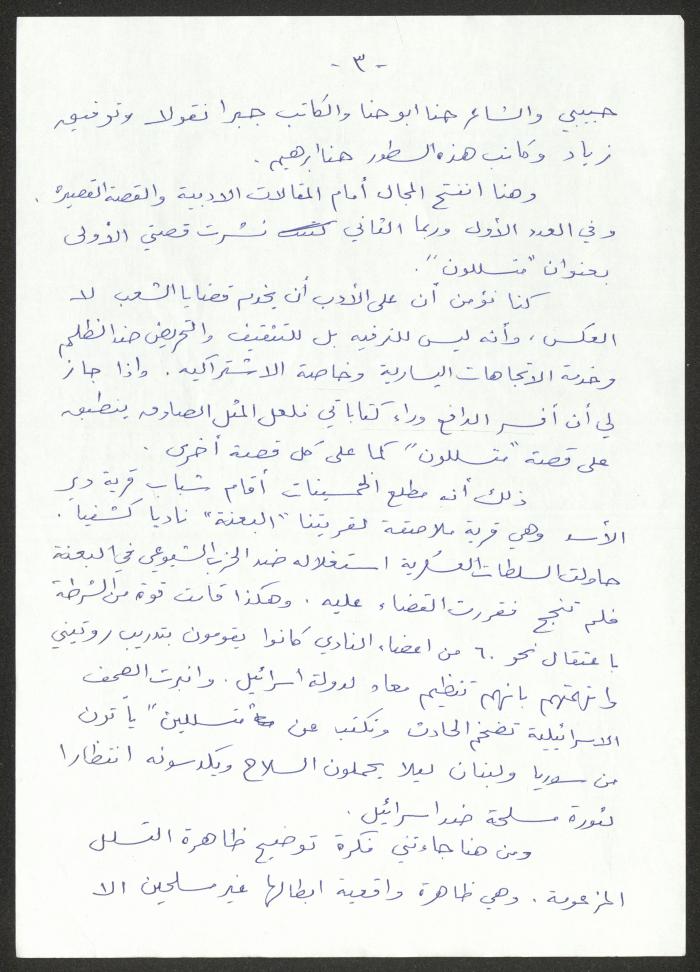 - ٣ -
حبيبي والشاعر حنا ابو حنا والكاتب جبرا نقولا وتوفيق
زياد وكاتب هذه السطور حنا ابرهيم .
وهنا انفتح المجال أمام المقالات الادبية والقصة القصيرة .
وفي العدد الأول وربما الثاني نشرت قصتي الأولى
بعنوان "متسللون" .
كنا نؤمن أن على الأدب أن يخدم قضايا الشعب لا
العكس ، وأنه ليس للترفيه بل للتثقيف والتحريض ضد الظلم
وخدمة الاتجاهات اليسارية وخاصة الاشتراكية . واذا جاز
لي أن أفسر الدافع وراء كتاباتي فلعل المثل الصادق ينطبق
على قصة "متسللون" كما على كل قصة أخرى .
ذلك أنه مطلع الخمسينات أقام شباب قرية دير
الأسد وهي قرية ملاصقة لقريتنا "البعنة" ناديا كشفيا .
حاولت السلطات العسكرية استغلاله ضد الحزب الشيوعي في البعنة
فلم تنجح فقررت القضاء عليه . وهكذا قامت قوة من الشرطة
باعتقال نحو ٦٠ من اعضاء النادي كانوا يقومون بتدريب روتيني
واتهمتهم بانهم تنظيم معاد لدولة اسرائيل . وانبرت الصحف
الاسرائيلية تضخم الحادث وتكتب عن "متسللين" يأتون
من سوريا ولبنان ليلا يحملون السلاح ويكدسونه انتظارا
لثورة مسلحة ضد اسرائيل .
ومن هنا جاءتني فكرة توضيح ظاهرة التسلل
المزعومة . وهي ظاهرة واقعية ابطالها غير مسلحين الا